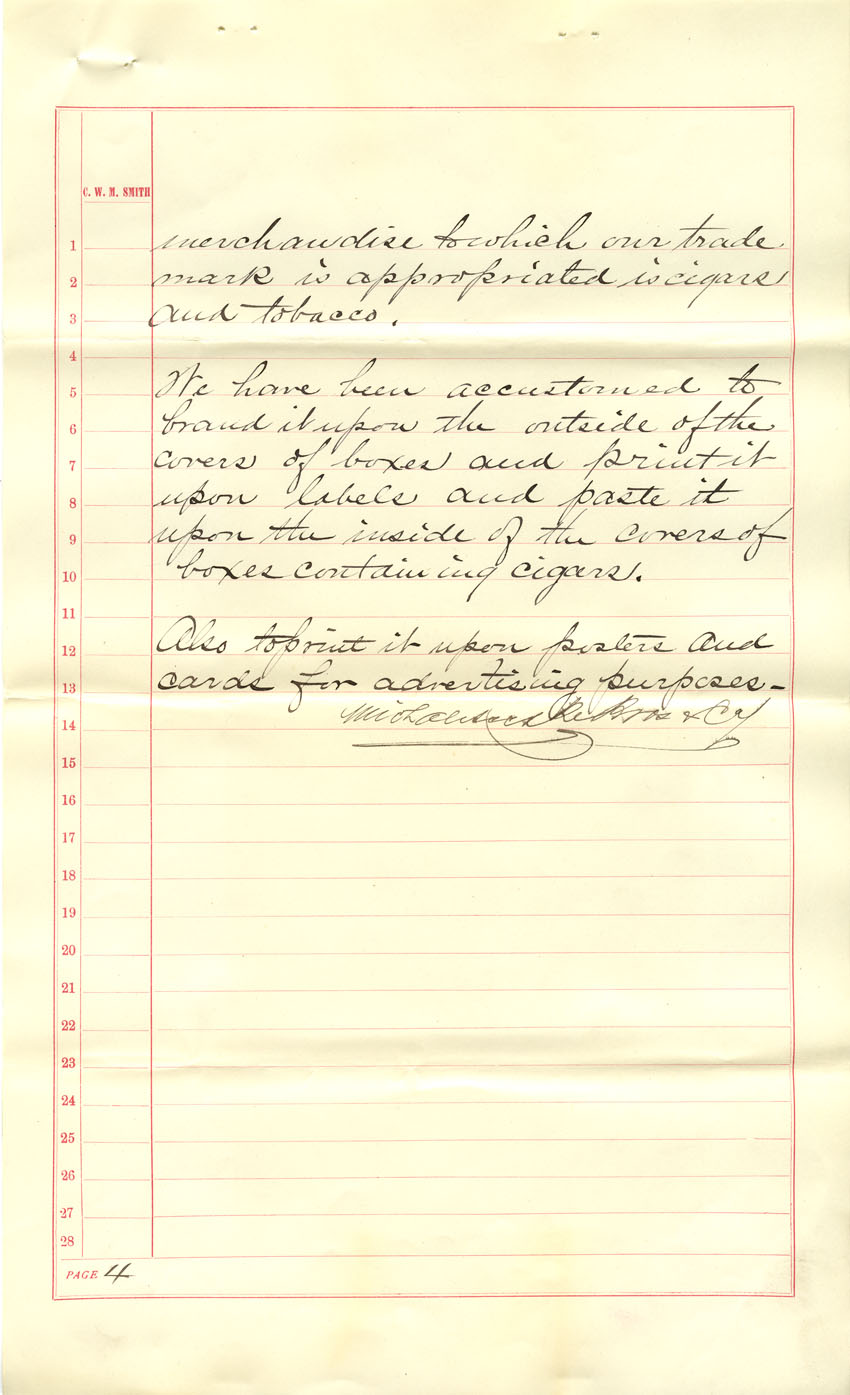 C. W. M. SMITH
1 merchandise to which our trade
2 mark is appropriated is cigars
3 and tobacco.
4
5 We have been accustomed to
6 brand it upon the outside of the
7 covers of boxes and print it
8 upon labels and paste it
9 upon the inside of the covers of
10 boxes containing cigars.
11
12 Also to print it upon posters and
13 cards for advertising purposes-
14 Bros & Co
15
16
17
18
19
20
21
22
23
24
25
26
27
28
PAGE 4